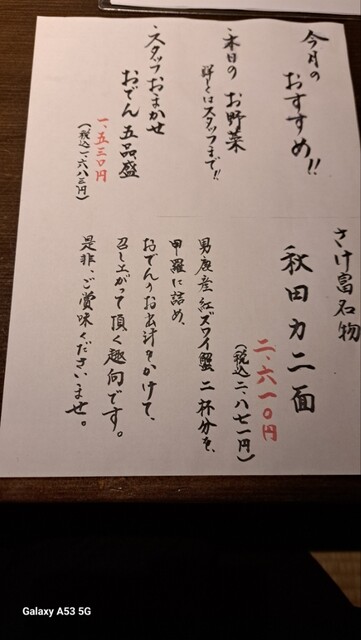 今月の
おすすめ!!
・本日の お野菜
詳しくはスタッフまで!!
・スタッフおまかせ
おでん 五品盛
一、五三〇円
(税込一、六八三円)
さけ富名物
秋田カニ面
二、六一〇円
(税込二、八七一円)
男鹿産紅ズワイ蟹二杯分を、
甲羅に詰め、
おでんのお出汁をかけて、
召し上がって頂く趣向です。
是非、ご賞味くださいませ。
Galaxy A53 5G